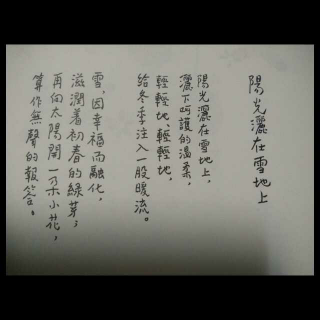 陽光灑在雪地上
陽光灑在雪地上，
灑下呵護的溫柔，
輕輕地，輕輕地，
給冬季注入一股暖流。
雪，因幸福而融化，
滋潤着初春的綠芽；
再向太陽開一朵小花，
算作無聲的報答。